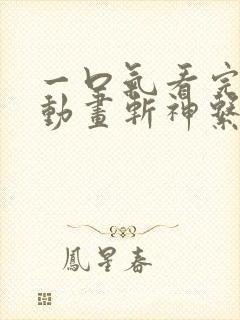 一口氣看完
動畫斬神繫
鳳星春